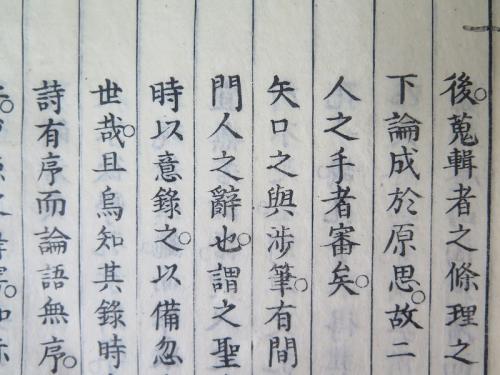 後。蒐輯者之條理之
下論成於原思。故二
人之手者審矣。
矢口之與涉筆。有間
門人之辭也。謂之聖
時以意錄之。以備忽
世哉。且烏知其錄時
詩有序而論語無序。